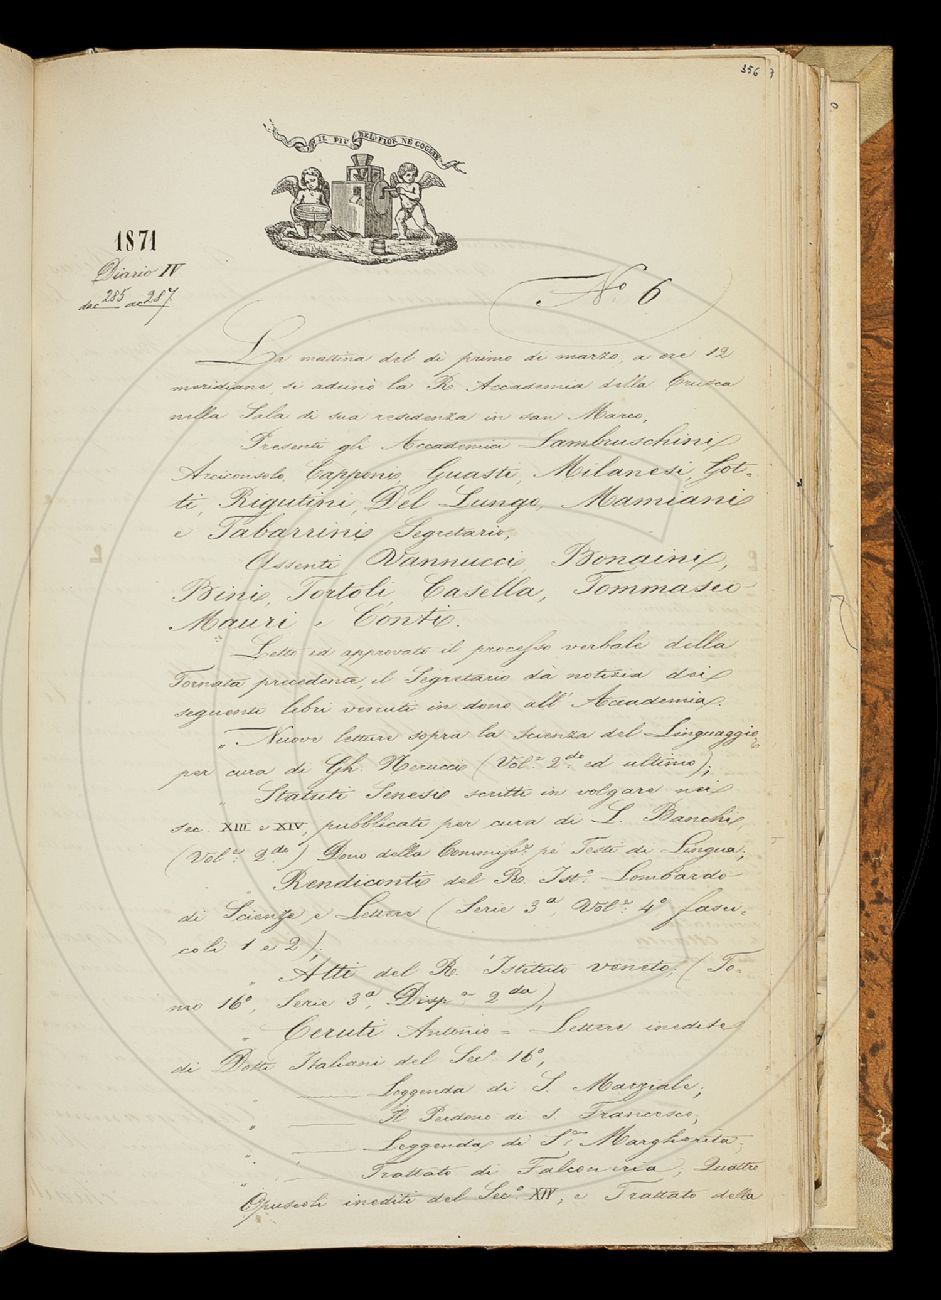 356
IL PIU BEL FIOR NE COGLIE
1871
Diario IV
da c 285 a c 287
N.º 6
La mattina del dì primo di marzo, a ore 12
meridiane, si adunò la R. Accademia della Crusca
nella Sala di sua residenza in san Marco.
Presenti gli Accademici Lambruschini
Arciconsolo, Capponi, Guasti, Milanesi, Got-
ti, Rigutini, Del Lungo, Mamiani
e Tabarrini Segretario.
Assenti Vannucci, Bonaini,
Bini, Tortoli, Casella, Tommaseo
Mauri e Conti.
Letto ed approvato il processo verbale della
Tornata precedente, il Segretario dà notizia dei
seguenti libri venuti in dono all'Accademia.
" Nuove letture sopra la scienza del Linguaggio
per cura di Gh. Nerucci (Vol.e 2.do ed ultimo);
" Statuti Senesi scritti in volgare nei
sec. XIII e XIV, pubblicati per cura di L. Banchi,
(Vol.e 2.do) Dono della Commiss.e pe' Testi di Lingua;
" Rendiconti del R. Ist.o Lombardo
di Scienze e Lettere (Serie 3ª, Vol.e 4º fasci-
coli 1 e 2);
" Atti del R. Istituto veneto. (To-
mo 16º, Serie 3ª, Disp.a 2.da);
" Ceruti Antonio = Lettere inedite
di Dotti Italiani del Sec.º 16º;
" — Leggenda di S. Marziale;
" — Il Perdono di S. Francesco;
" — Leggenda di S.ta Margherita;
" — Trattato di Falconeria; Quattro
Opuscoli inediti del Sec.º XIV; e Trattato della